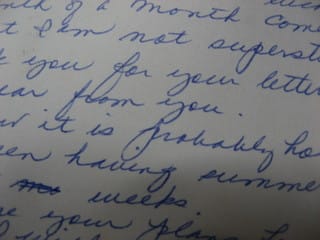 nth of a month com
t I am not superst
k you for your letter
ear from you.
w it is probably ho
een having summe
weeks.
e your plans